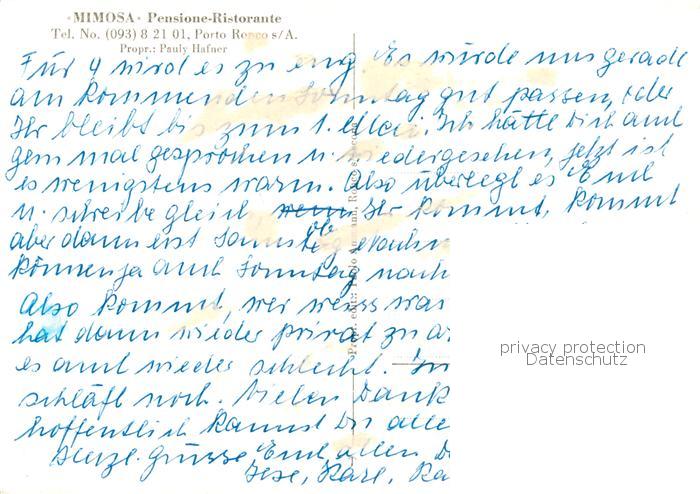 «MIMOSA» Pensione-Ristorante
Tel. No. (093) 8 21 01, Porto Ronco s/A.
Propr.: Pauly Hafner
Für 4 wird es zu eng. Es würde uns gerade
am kommenden Sonntag gut passen, oder
Ihr bleibt bis zum 1. Mai. Ich hätte Dich auch
gern mal gesprochen u. wiedergesehen, jetzt ist
es wenigstens warm. Also überlegt es Euch
u. schreibe gleich wenn ob Ihr kommt, kommt
aber dann erst Samstag
können ja auch Sonntag nach
Also kommt, wer weiss was
hat dann wieder privat zu
es auch wieder schlecht.
schläft noch. Vielen Dank
hoffentlich kannst Du alle
Herzl. Grüsse Euch allen
Karl,
privacy protection
Datenschutz